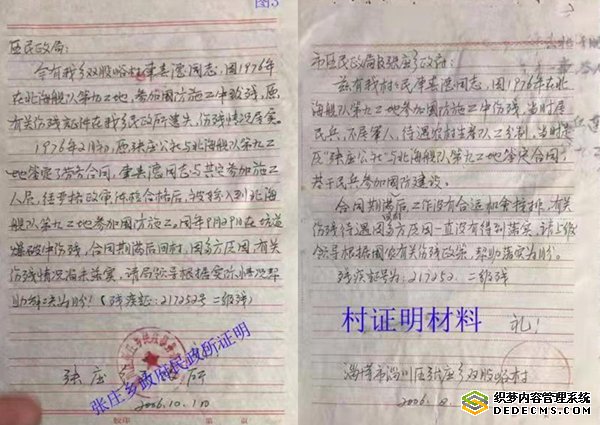 图3
区民政局:
今有我乡双股峪村肇喜德同志,因1976年
在北海舰队第九工地,参加国防施工中致残,原
有关伤残证件在我乡民政所遗失,伤残情况属实。
1976年2月初,原张庄公社与北海舰队第九工
地签定了劳务合同,肇喜德同志与其它参加施工
人员,经严格政审,体验合格后,被
舰队第九工地参加国防施工。同年9月29日在坑道
爆破中伤残,合同期满后回村,因多方原因,有关
伤残情况尚未落实,请局领导根据实际情况帮
助解决为盼!(残疾证:217252号 二级残)
张庄
所
2006.10.10
张庄乡政府民政所证明
第 页
市区民政局及张庄乡政府:
兹有我村村民肇喜德同志,因1976年在北
海舰队第九工地参加国防施工中伤残,当时属
民兵,不属军人,待遇农村生产队工分制,当时是
原"张庄公社"与北海舰队第九工地签定合同,
基于民兵参加国防建设。
合同期满后,工作没有合适和食接排,有关
伤残待遇因多方原因一直没有得到落实,请上级
领导根据国家有关伤残政策,帮助落实为盼。
残疾证号为:217252. 二级残
村证明材料
礼!
淄博市淄川区张庄乡双股峪村
2006.
织梦内容管理系统
DEDECMS.COM